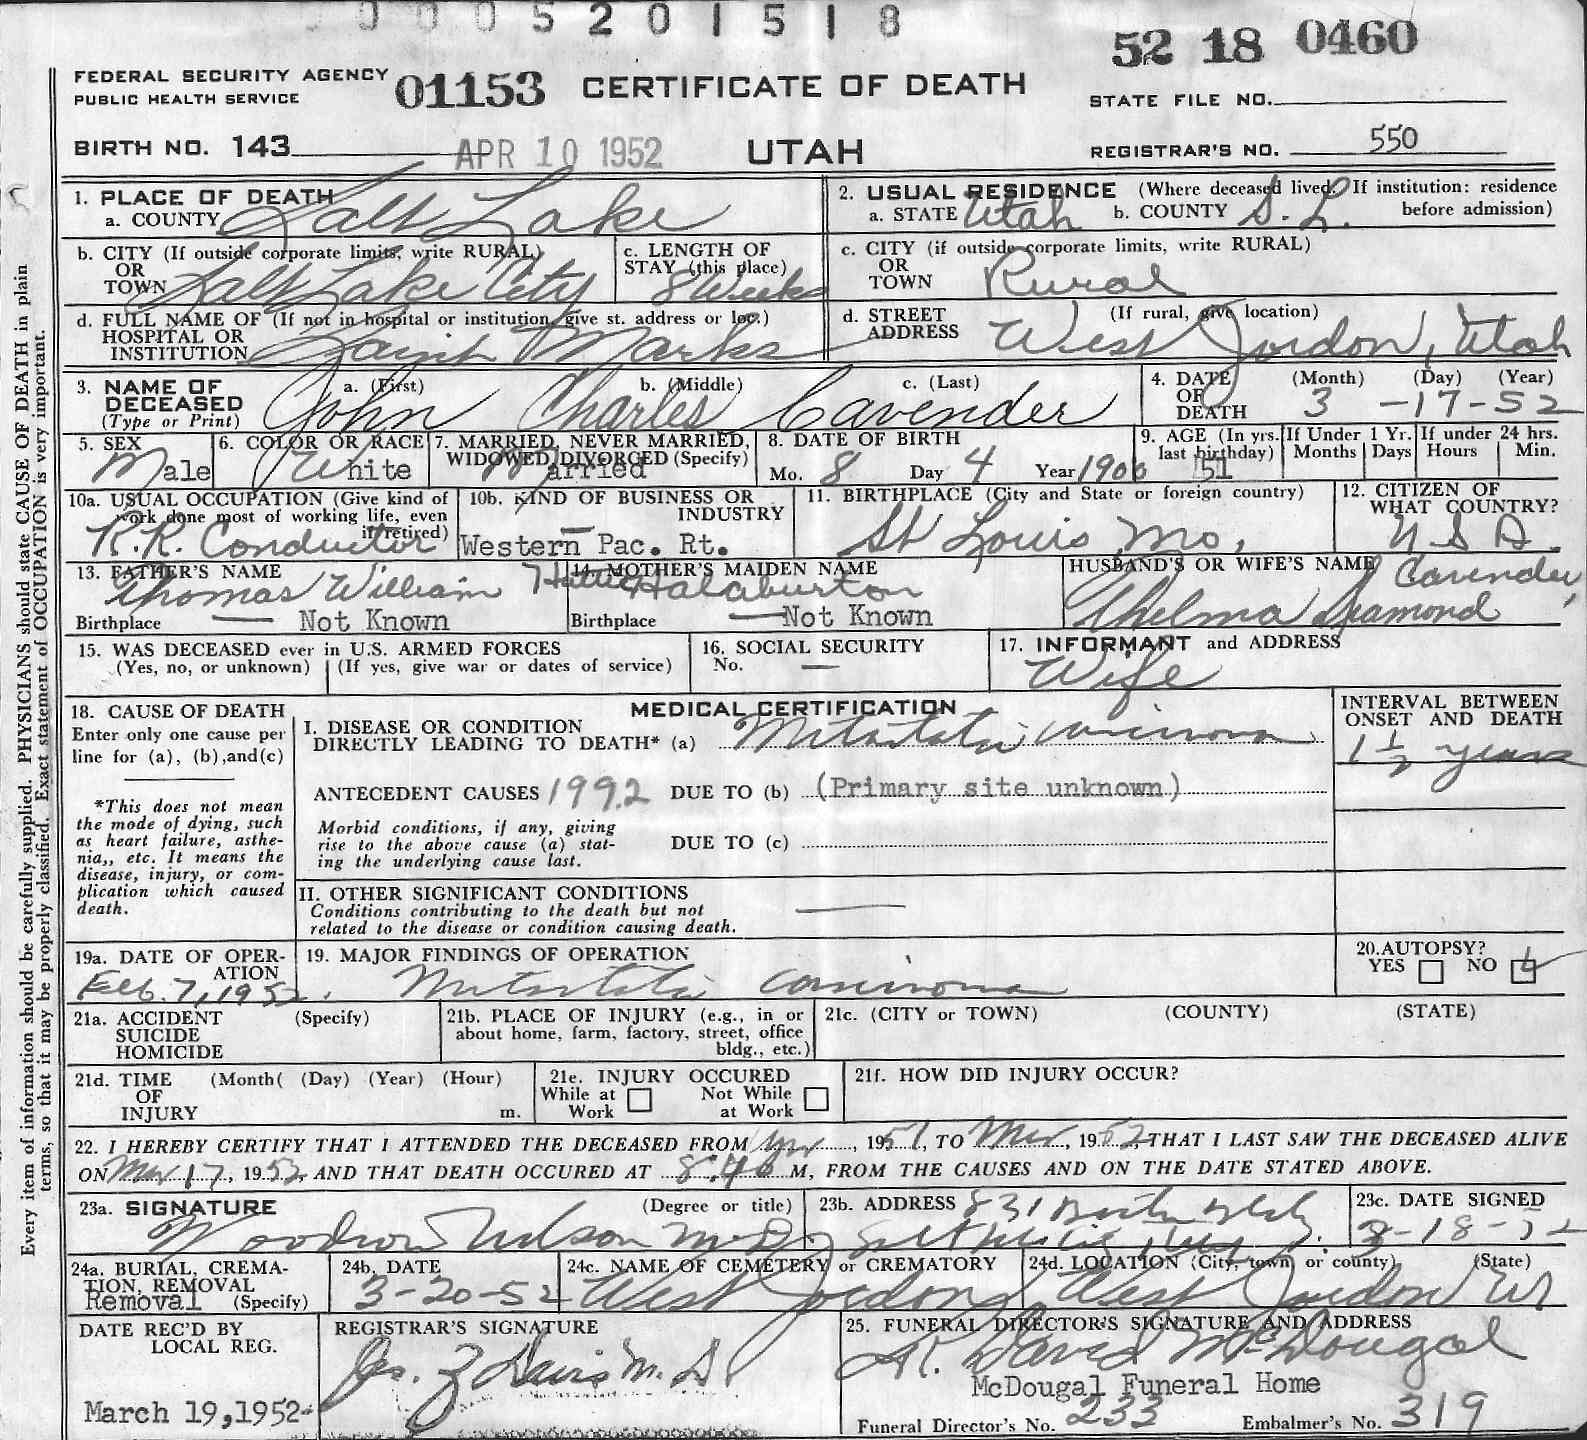 0 0 0 5 2 0 1 5 1 8
52 18 0460
FEDERAL SECURITY AGENCY
PUBLIC HEALTH SERVICE
01153 CERTIFICATE OF DEATH
STATE FILE NO.
BIRTH NO. 143
APR 10 1952
UTAH
REGISTRAR'S NO. 550
Every item of information should be carefully supplied. PHYSICIANS should state CAUSE OF DEATH in plain
terms, so that it may be properly classified. Exact statement of OCCUPATION is very important.
1. PLACE OF DEATH
a. COUNTY Salt Lake
2. USUAL RESIDENCE (Where deceased lived. If institution: residence
a. STATE Utah b. COUNTY S. L. before admission)
b. CITY (If outside corporate limits, write RURAL)
OR
TOWN Salt Lake City
c. LENGTH OF
STAY (this place)
8 Weeks
c. CITY (if outside corporate limits, write RURAL)
OR
TOWN Rural
d. FULL NAME OF (If not in hospital or institution, give st. address or loc.)
HOSPITAL OR
INSTITUTION Saint Marks
d. STREET (If rural, give location)
ADDRESS West Jordon, Utah
3. NAME OF
DECEASED
(Type or Print)
a. (First) b. (Middle) c. (Last)
John Charles Cavender
4. DATE (Month) (Day) (Year)
OF
DEATH 3 -17-52
5. SEX
Male
6. COLOR OR RACE
White
7. MARRIED, NEVER MARRIED,
WIDOWED, DIVORCED (Specify)
Married
8. DATE OF BIRTH
Mo. 8 Day 4 Year 1900
9. AGE (In yrs.
last birthday)
51
If Under 1 Yr.
Months Days
If under 24 hrs.
Hours Min.
10a. USUAL OCCUPATION (Give kind of
work done most of working life, even
if retired)
R.R. Conductor
10b. KIND OF BUSINESS OR
INDUSTRY
Western Pac. Rt.
11. BIRTHPLACE (City and State or foreign country)
St Louis Mo,
12. CITIZEN OF
WHAT COUNTRY?
U.S.A.
13. FATHER'S NAME
Thomas William
Birthplace — Not Known
14. MOTHER'S MAIDEN NAME
Hattie Halaburton
Birthplace — Not Known
HUSBAND'S OR WIFE'S NAME
Cavender,
Thelma Diamond
15. WAS DECEASED ever in U.S. ARMED FORCES
(Yes, no, or unknown) (If yes, give war or dates of service)
16. SOCIAL SECURITY
No. —
17. INFORMANT and ADDRESS
Wife
18. CAUSE OF DEATH
Enter only one cause per
line for (a), (b), and (c)
*This does not mean
the mode of dying, such
as heart failure, asthe-
nia,, etc. It means the
disease, injury, or com-
plication which caused
death.
MEDICAL CERTIFICATION
I. DISEASE OR CONDITION
DIRECTLY LEADING TO DEATH* (a) Metastatic carcinoma
ANTECEDENT CAUSES 1992 DUE TO (b) (Primary site unknown)
Morbid conditions, if any, giving
rise to the above cause (a) stat-
ing the underlying cause last.
DUE TO (c)
II. OTHER SIGNIFICANT CONDITIONS
Conditions contributing to the death but not
related to the disease or condition causing death.
—
INTERVAL BETWEEN
ONSET AND DEATH
1 1/2 years
19a. DATE OF OPER-
ATION
Feb. 7, 1952.
19. MAJOR FINDINGS OF OPERATION
Metastatic carcinoma
20. AUTOPSY?
YES NO
21a. ACCIDENT (Specify)
SUICIDE
HOMICIDE
21b. PLACE OF INJURY (e.g., in or
about home, farm, factory, street, office
bldg., etc.)
21c. (CITY or TOWN) (COUNTY) (STATE)
21d. TIME (Month( (Day) (Year) (Hour)
OF
INJURY m.
21e. INJURY OCCURED
While at Not While
Work at Work
21f. HOW DID INJURY OCCUR?
22. I HEREBY CERTIFY THAT I ATTENDED THE DECEASED FROM, 1951, TO Mar, 1952, THAT I LAST SAW THE DECEASED ALIVE
ON Mar 17, 1952, AND THAT DEATH OCCURED AT 8:40 M, FROM THE CAUSES AND ON THE DATE STATED ABOVE.
23a. SIGNATURE (Degree or title)
Woodrow Nelson M.D.
23b. ADDRESS 831 Boston Bldg
Salt Lake City
23c. DATE SIGNED
3-18-52
24a. BURIAL, CREMA-
TION, REMOVAL
Removal (Specify)
24b. DATE
3-20-52
24c. NAME OF CEMETERY or CREMATORY
West Jordon
24d. LOCATION (City, town, or county) (State)
West Jordon Ut
DATE REC'D BY
LOCAL REG.
March 19,1952-
REGISTRAR'S SIGNATURE
Jas. Z Davis M.D
25. FUNERAL DIRECTOR'S SIGNATURE AND ADDRESS
David McDougal
McDougal Funeral Home
Funeral Director's No. 233 Embalmer's No. 319